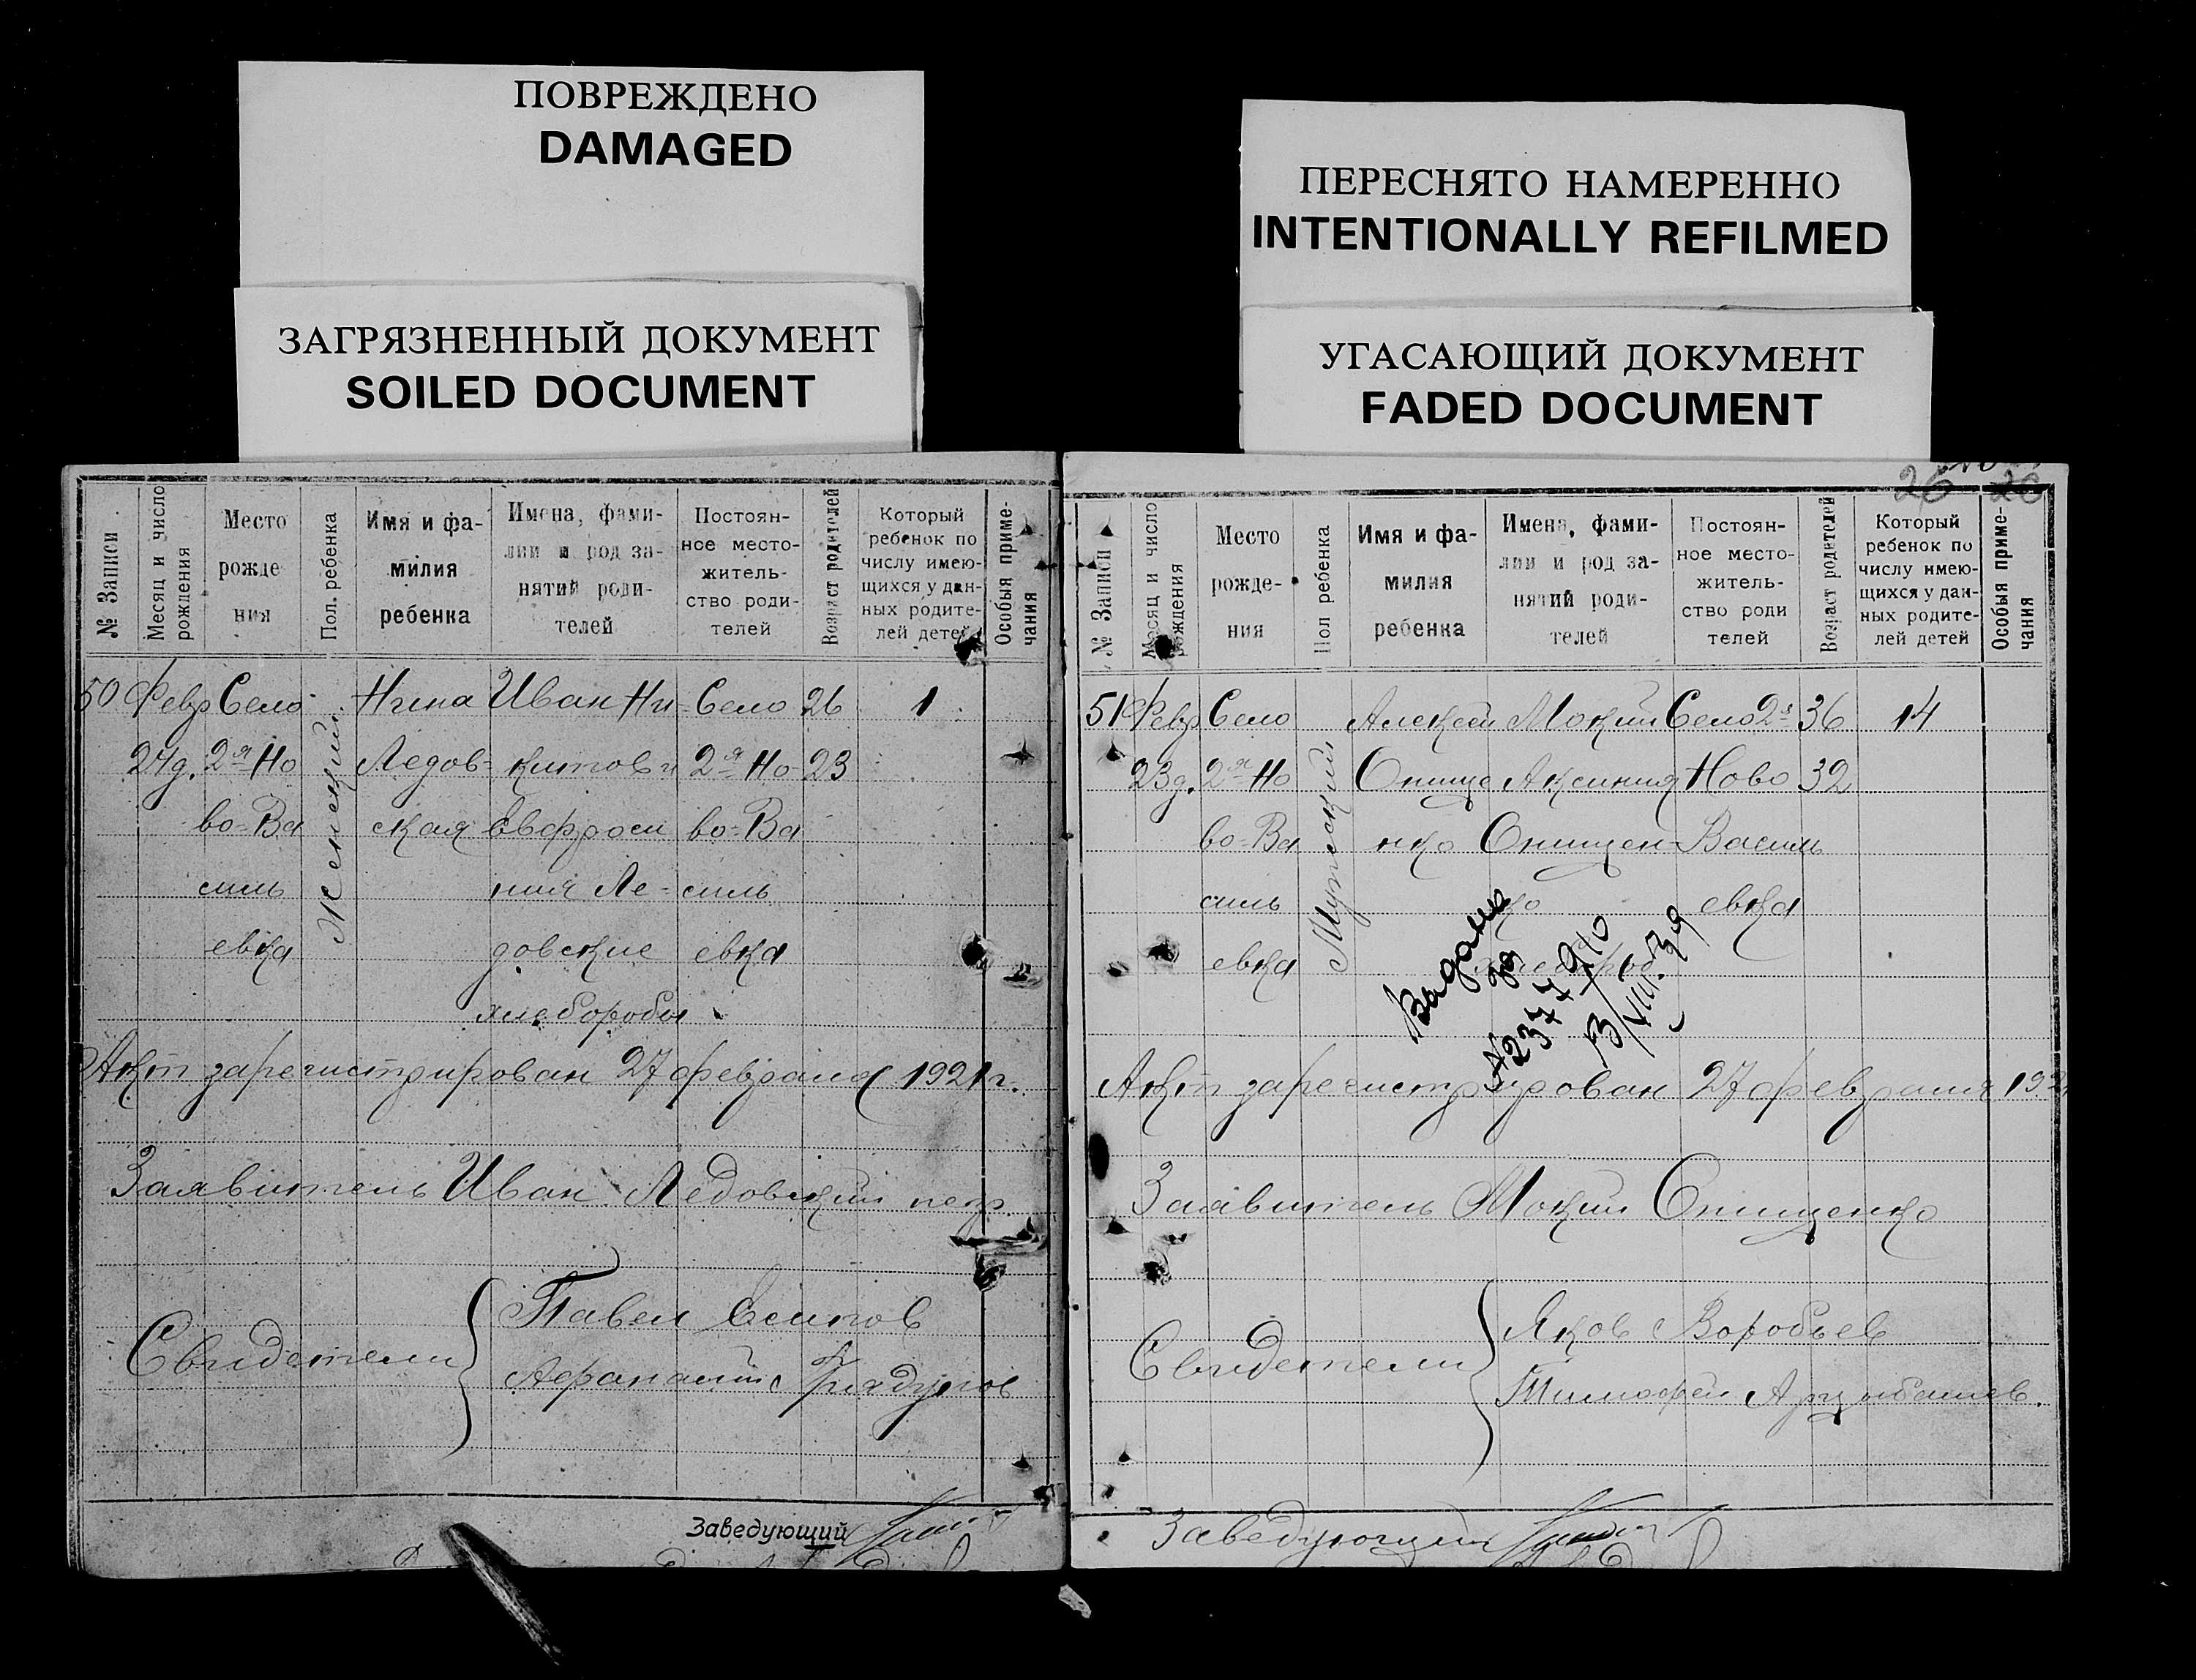 ПОВРЕЖДЕНО
DAMAGED
ЗАГРЯЗНЕННЫЙ ДОКУМЕНТ
SOILED DOCUMENT
ПЕРЕСНЯТО НАМЕРЕННО
INTENTIONALLY REFILMED
УГАСАЮЩИЙ ДОКУМЕНТ
FADED DOCUMENT
№ Записи
Месяц и число
рождения
Место
рожде
ния
Пол. ребенка
Имя и фа-
милия
ребенка
Имена, фами-
лии и род за-
нятий роди-
телей
Постоян-
ное место-
житель-
ство роди-
телей
Возраст родителей
Который
ребенок по
числу имею-
щихся у дан-
ных родите-
лей детей
Особыя приме-
чания
50 Февр Село Женский Нина Иван Ни- Село 26 1
24д. 2я Но Ледов- китов и 2я Но 23
во-Ва ская Евфроси во-Ва
силь ния Ле- силь
евка довские евка
хлеборобы
Акт зарегистрирован 27 февраля 1921 г.
Заявитель Иван Ледовский негр.
Свидетели
Павел Осипов
Афанасий
Заведующий
26 26
№ Записи
Месяц и число
рождения
Место
рожде-
ния
Пол ребенка
Имя и фа-
милия
ребенка
Имена, фами-
лии и род за-
нятий роди-
телей
Постоян-
ное место-
житель-
ство роди
телей
Возраст родителей
Который
ребенок по
числу имею-
щихся у дан-
ных родите-
лей детей
Особыя приме-
чания
51 Февр Село Мужский Алексей Мокий Село 2я 36 14
23д. 2я Но Онище Аксиния Ново 32
во-Ва нко Онищен- Василь
силь ко евка
евка хлебороб
Акт зарегистрирован 27 февраля 192
Заявитель Мокий Онищенко
Свидетели
Яков Воробьев
Тимофей Арцыбашев.
Заведующий